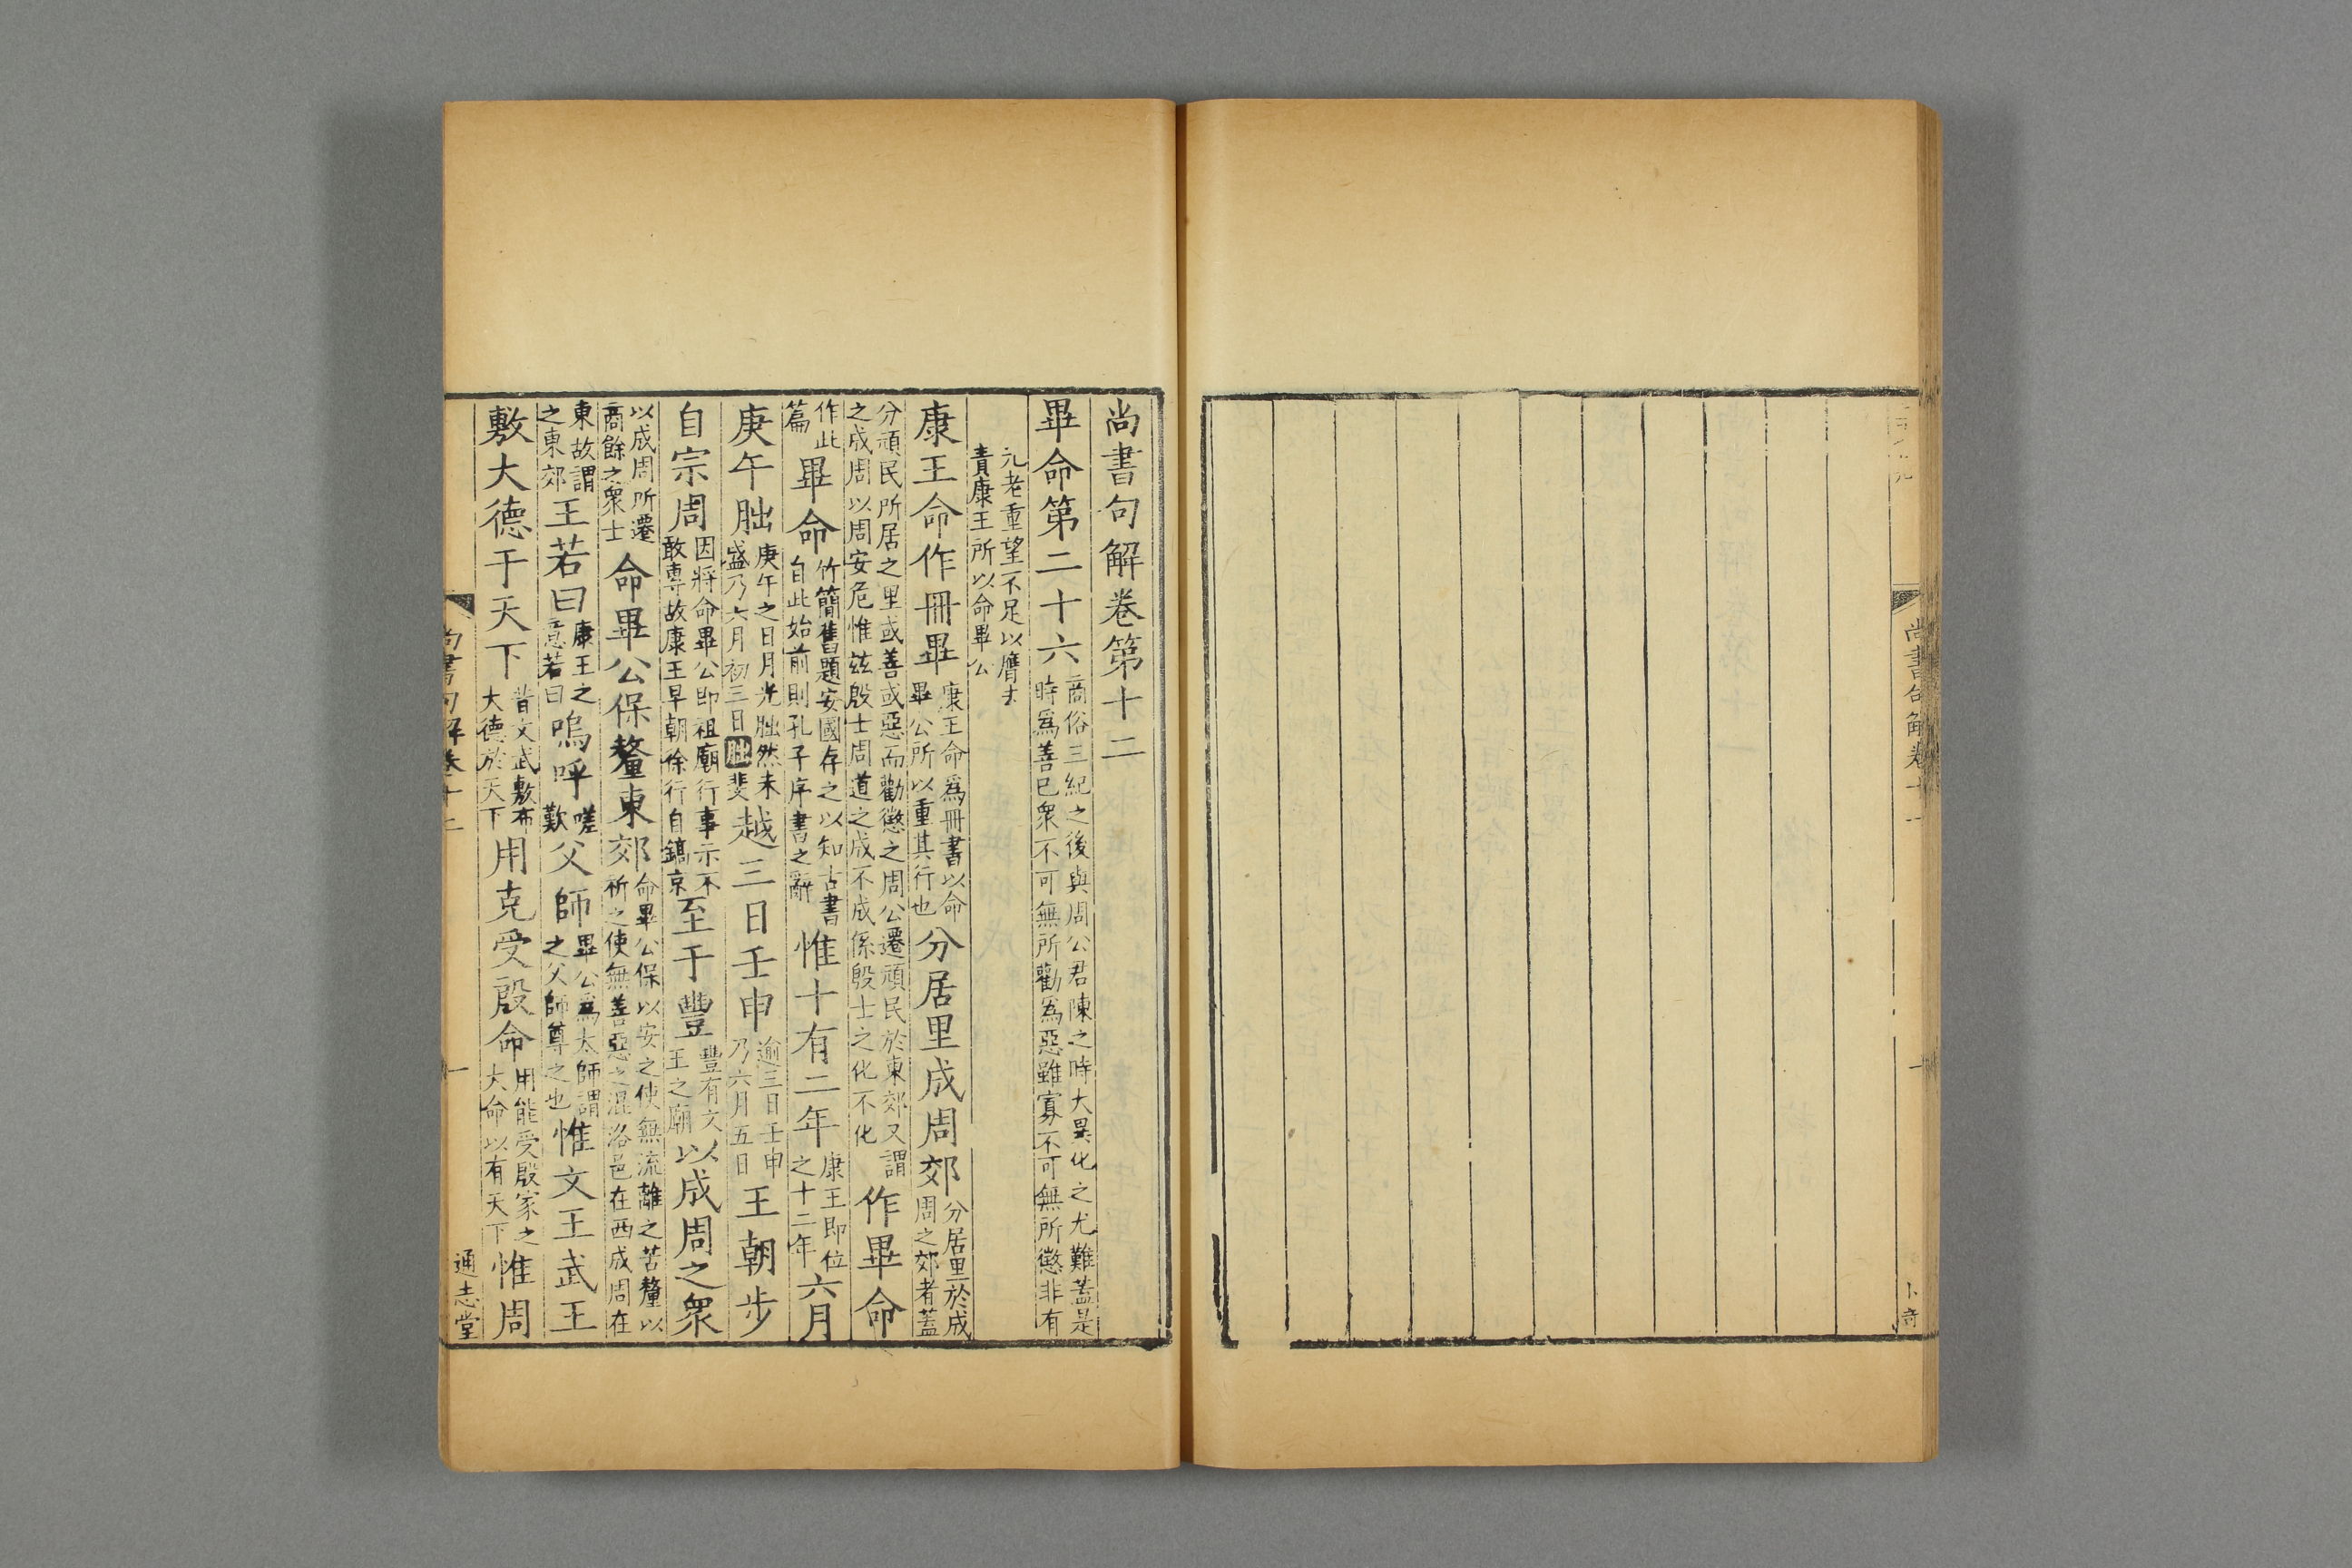 尚書句解卷十一
卜奇
尚書句解卷第十二
畢命第二十六商俗三紀之後與周公君陳之時大異化之尤難蓋是時爲善已衆不可無所勸爲惡雖寡不可無所懲非有
元老重望不足以膺去責康王所以命畢公
康王命作冊畢康王命爲冊書以命畢公所以重其行也分居里成周郊分居里於成周之郊者蓋
分頑民所居之里或善或惡而勸懲之周公遷頑民於東郊又謂之成周以周安危惟玆殷士周道之成不成係殷士之化不化作畢命
作此篇畢命竹簡舊題安國存之以知古書自此始前則孔子序書之辭惟十有二年康王即位之十二年六月
庚午朏庚午之日月光朏然未盛乃六月初三日朏斐越三日壬申逾三日壬申乃六月五日王朝步
自宗周因將命畢公即祖廟行事示不敢專故康王早朝徐行自鎬京至于豐豐有文王之廟以成周之衆
以成周所遷商餘之衆士命畢公保釐東郊命畢公保以安之使無流離之苦釐以祈之使無善惡之混洛邑在西成周在
東故謂之東郊王若曰康王之意若曰嗚呼嗟歎父師畢公爲太師謂之父師尊之也惟文王武王
敷大德于天下昔文武敷布大德於天下用克受殷命用能受殷家之大命以有天下惟周
尚書句解卷十二 一 通志堂